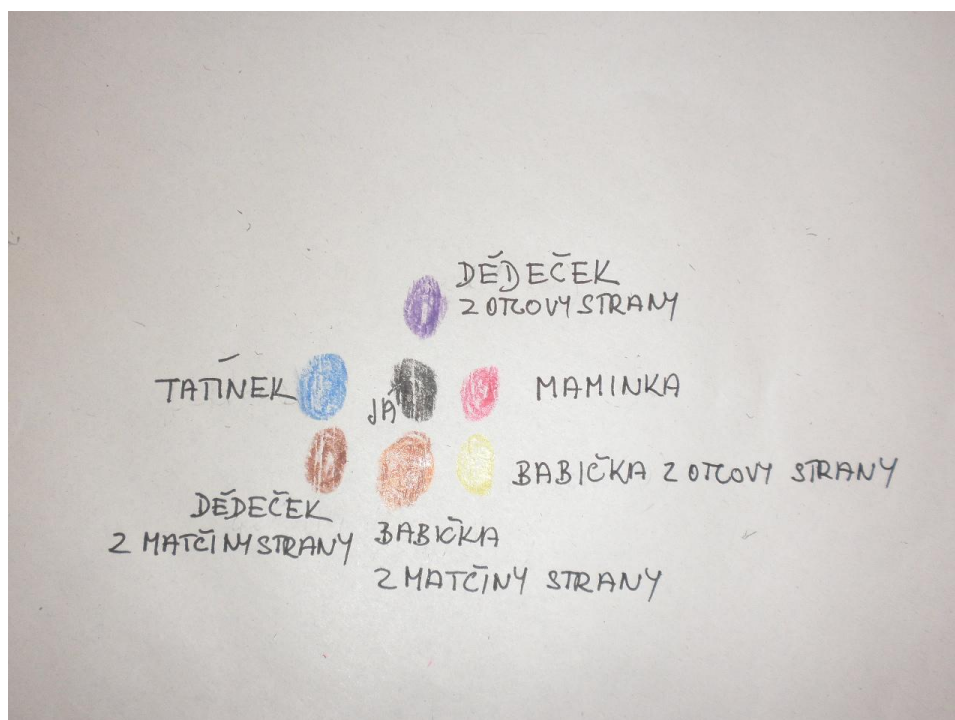 DĚDEČEK
Z OTCOVY STRANY
TATÍNEK
JÁ
MAMINKA
BABIČKA Z OTCOVY STRANY
DĚDEČEK
Z MATČINY STRANY
BABIČKA
Z MATČINY STRANY